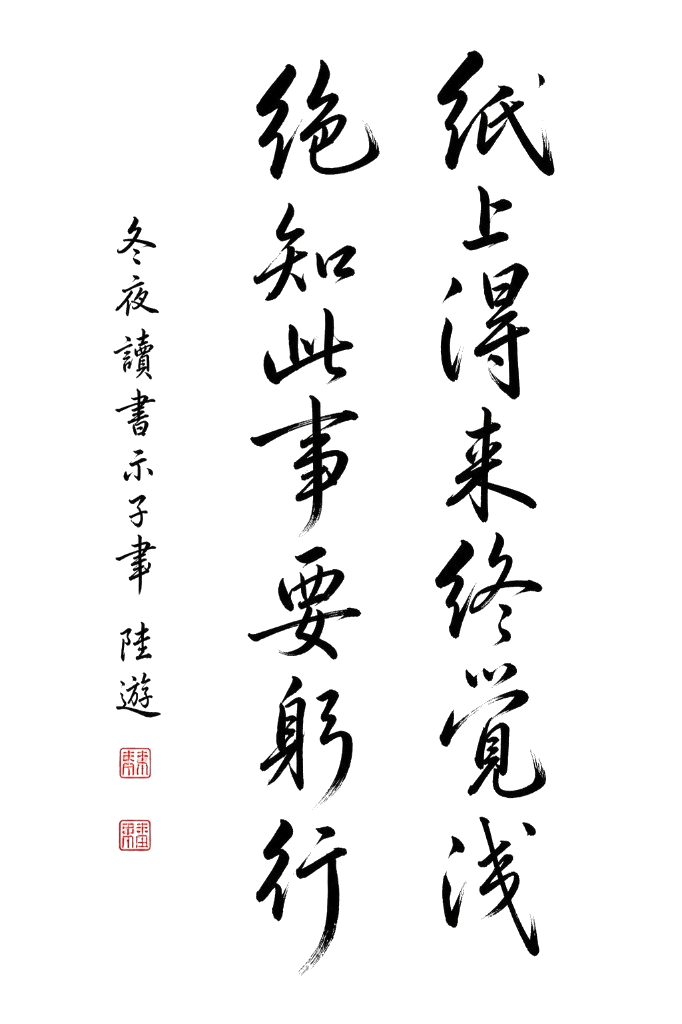 紙上得来终覚浅
絶知此事要躬行
冬夜讀書示子聿 陸遊